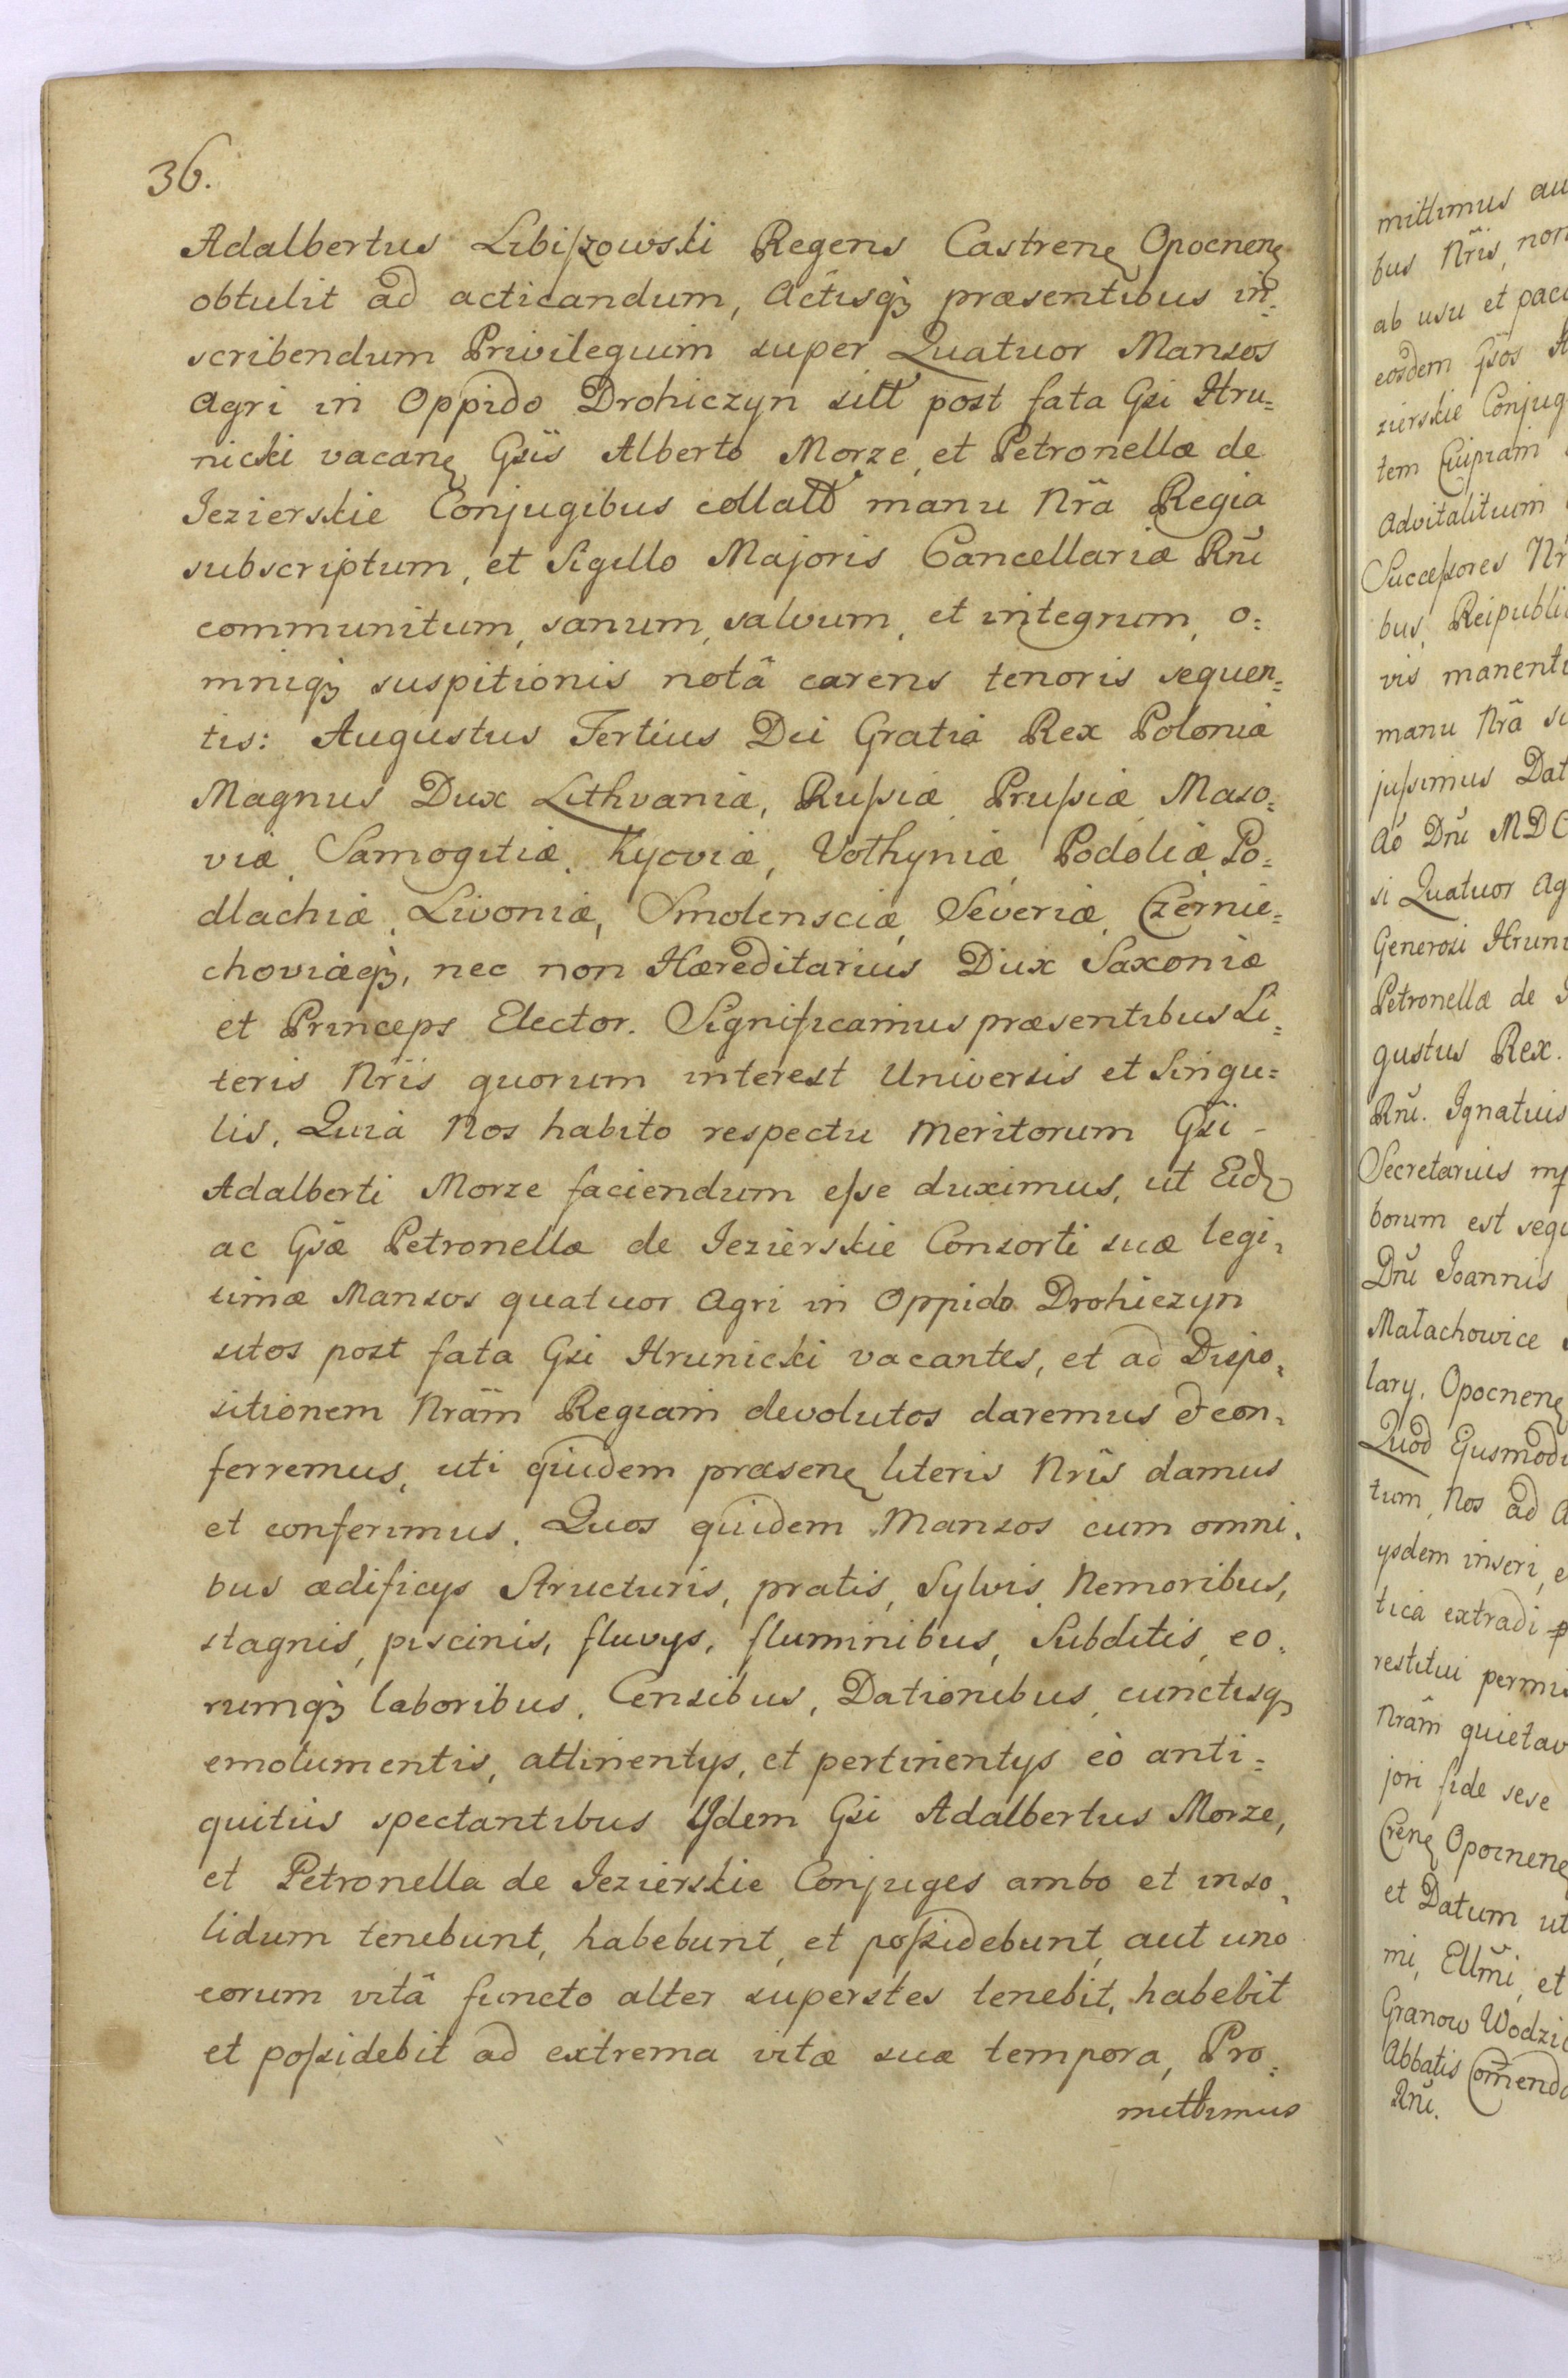 36.
Adalbertus Libiszowski Regens Castrenę Opocnenę
obtulit ad acticandum, Actisqȝ præsentibus in=
scribendum Privilegium super Quatuor Mansos
Agri in Oppido Drohiczyn sitt post fata Gsi Hru=
nicki vacanę Gsis Alberto Morze, et Petronellæ de
Jezierskie Conjugibus collatt manu Nrã Regia
subscriptum, et Sigillo Majoris Cancellariæ Rnĩ
communitum, sanum, salvum, et integrum, o=
mniqȝ suspitionis notâ carens tenoris sequen=
tis: Augustus Tertius Dei Gratia Rex Poloniæ
Magnus Dux Lithvaniæ, Rußiæ, Prußiæ, Maso=
viæ, Samogitiæ, Kyoviæ, Volhyniæ, Podoliæ, Po=
dlachiæ, Livoniæ, Smolensciæ, Severiæ, Czernie=
choviæqȝ, nec non Hæreditarius Dux Saxoniæ
et Princeps Elector. Significamus præsentibus Li=
teris Nrĩs quorum interest Universis et Singu=
lis, Quia Nos habito respectu meritorum Gsĩ -
Adalberti Morze faciendum eße duximus, ut Eid
ac Gsæ Petronellæ de Jezierskie Consorti suæ legi=
timæ Mansos quatuor Agri in Oppido Drohiczyn
sitos post fata Gsi Hrunicki vacantes, et ad Dispo=
sitionem Nrãm Regiam devolutos daremus & con=
ferremus, uti quidem præsenę literis Nrĩs damus
et conferimus. Quos quidem Mansos cum omni=
bus ædificys Structuris, pratis, Sylvis, Nemoribus,
stagnis, piscinis, fluvys, fluminibus, Subditis, eo=
rumqȝ laboribus, Censibus, Dationibus, cunctisqȝ
emolumentis, attinentys, et pertinentys eò anti=
quitùs spectantibus Ydem Gsi Adalbertus Morze,
et Petronella de Jezierskie Conjuges ambo et inso=
lidum tenebunt, habebunt, et poßidebunt, aut uno
eorum vitâ functo alter superstes tenebit, habebit
et poßidebit ad extrema vitæ suæ tempora, Pro=
mittimus
mittimus au
bus Nrĩs, non
ab usu et paci
eosdem Gsos A
zierskie Conjug
tem Cuipiam
Advitalitium
Succeßores Nr
bus, Reipubli
vis manenti
manu Nrã su
jußimus Dat
Aõ Dnĩ MDC
si Quatuor Ag
Generosi Hruni
Petronellæ de J
gustus Rex.
Rnĩ. Ignatius
Secretarius mp
borum est sequ
Dnĩ Joannis
Małachowice
lary, Opocnenę
Quod Ejusmodi
tum, Nos ad A
ysdem inseri, e
tica extradi
restitui permis
Nrãm quietav
jori fide sese
Crenę Opocnenę
et Datum ut
mi, Ellmĩ, et
Granow Wodzic
Abbatis Com̃enda
Rnĩ.